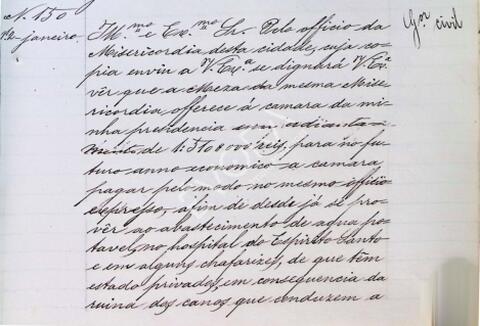 N. 150
1º de janeiro.
Gor civil
Illmo e Exmo Sr. Pelo officio da
Misericordia desta cidade, cuja co-
pia envio a V. Exa se dignará V. Exa
vêr que a Meza da mesma Mise-
ricordia, offerece á camara da mi-
nha presidencia
de 1:5168000 reis, para no fu-
turo anno economico a camara
pagar pelo modo no mesmo officio
expresso, a fim de desde já se pro-
vêr ao abastecimento de agua po-
tavel, no hospital do Espirito Santo
e em alguns chafarizes, de que têm
estado privados, em consequencia da
ruina dos canos que conduzem a